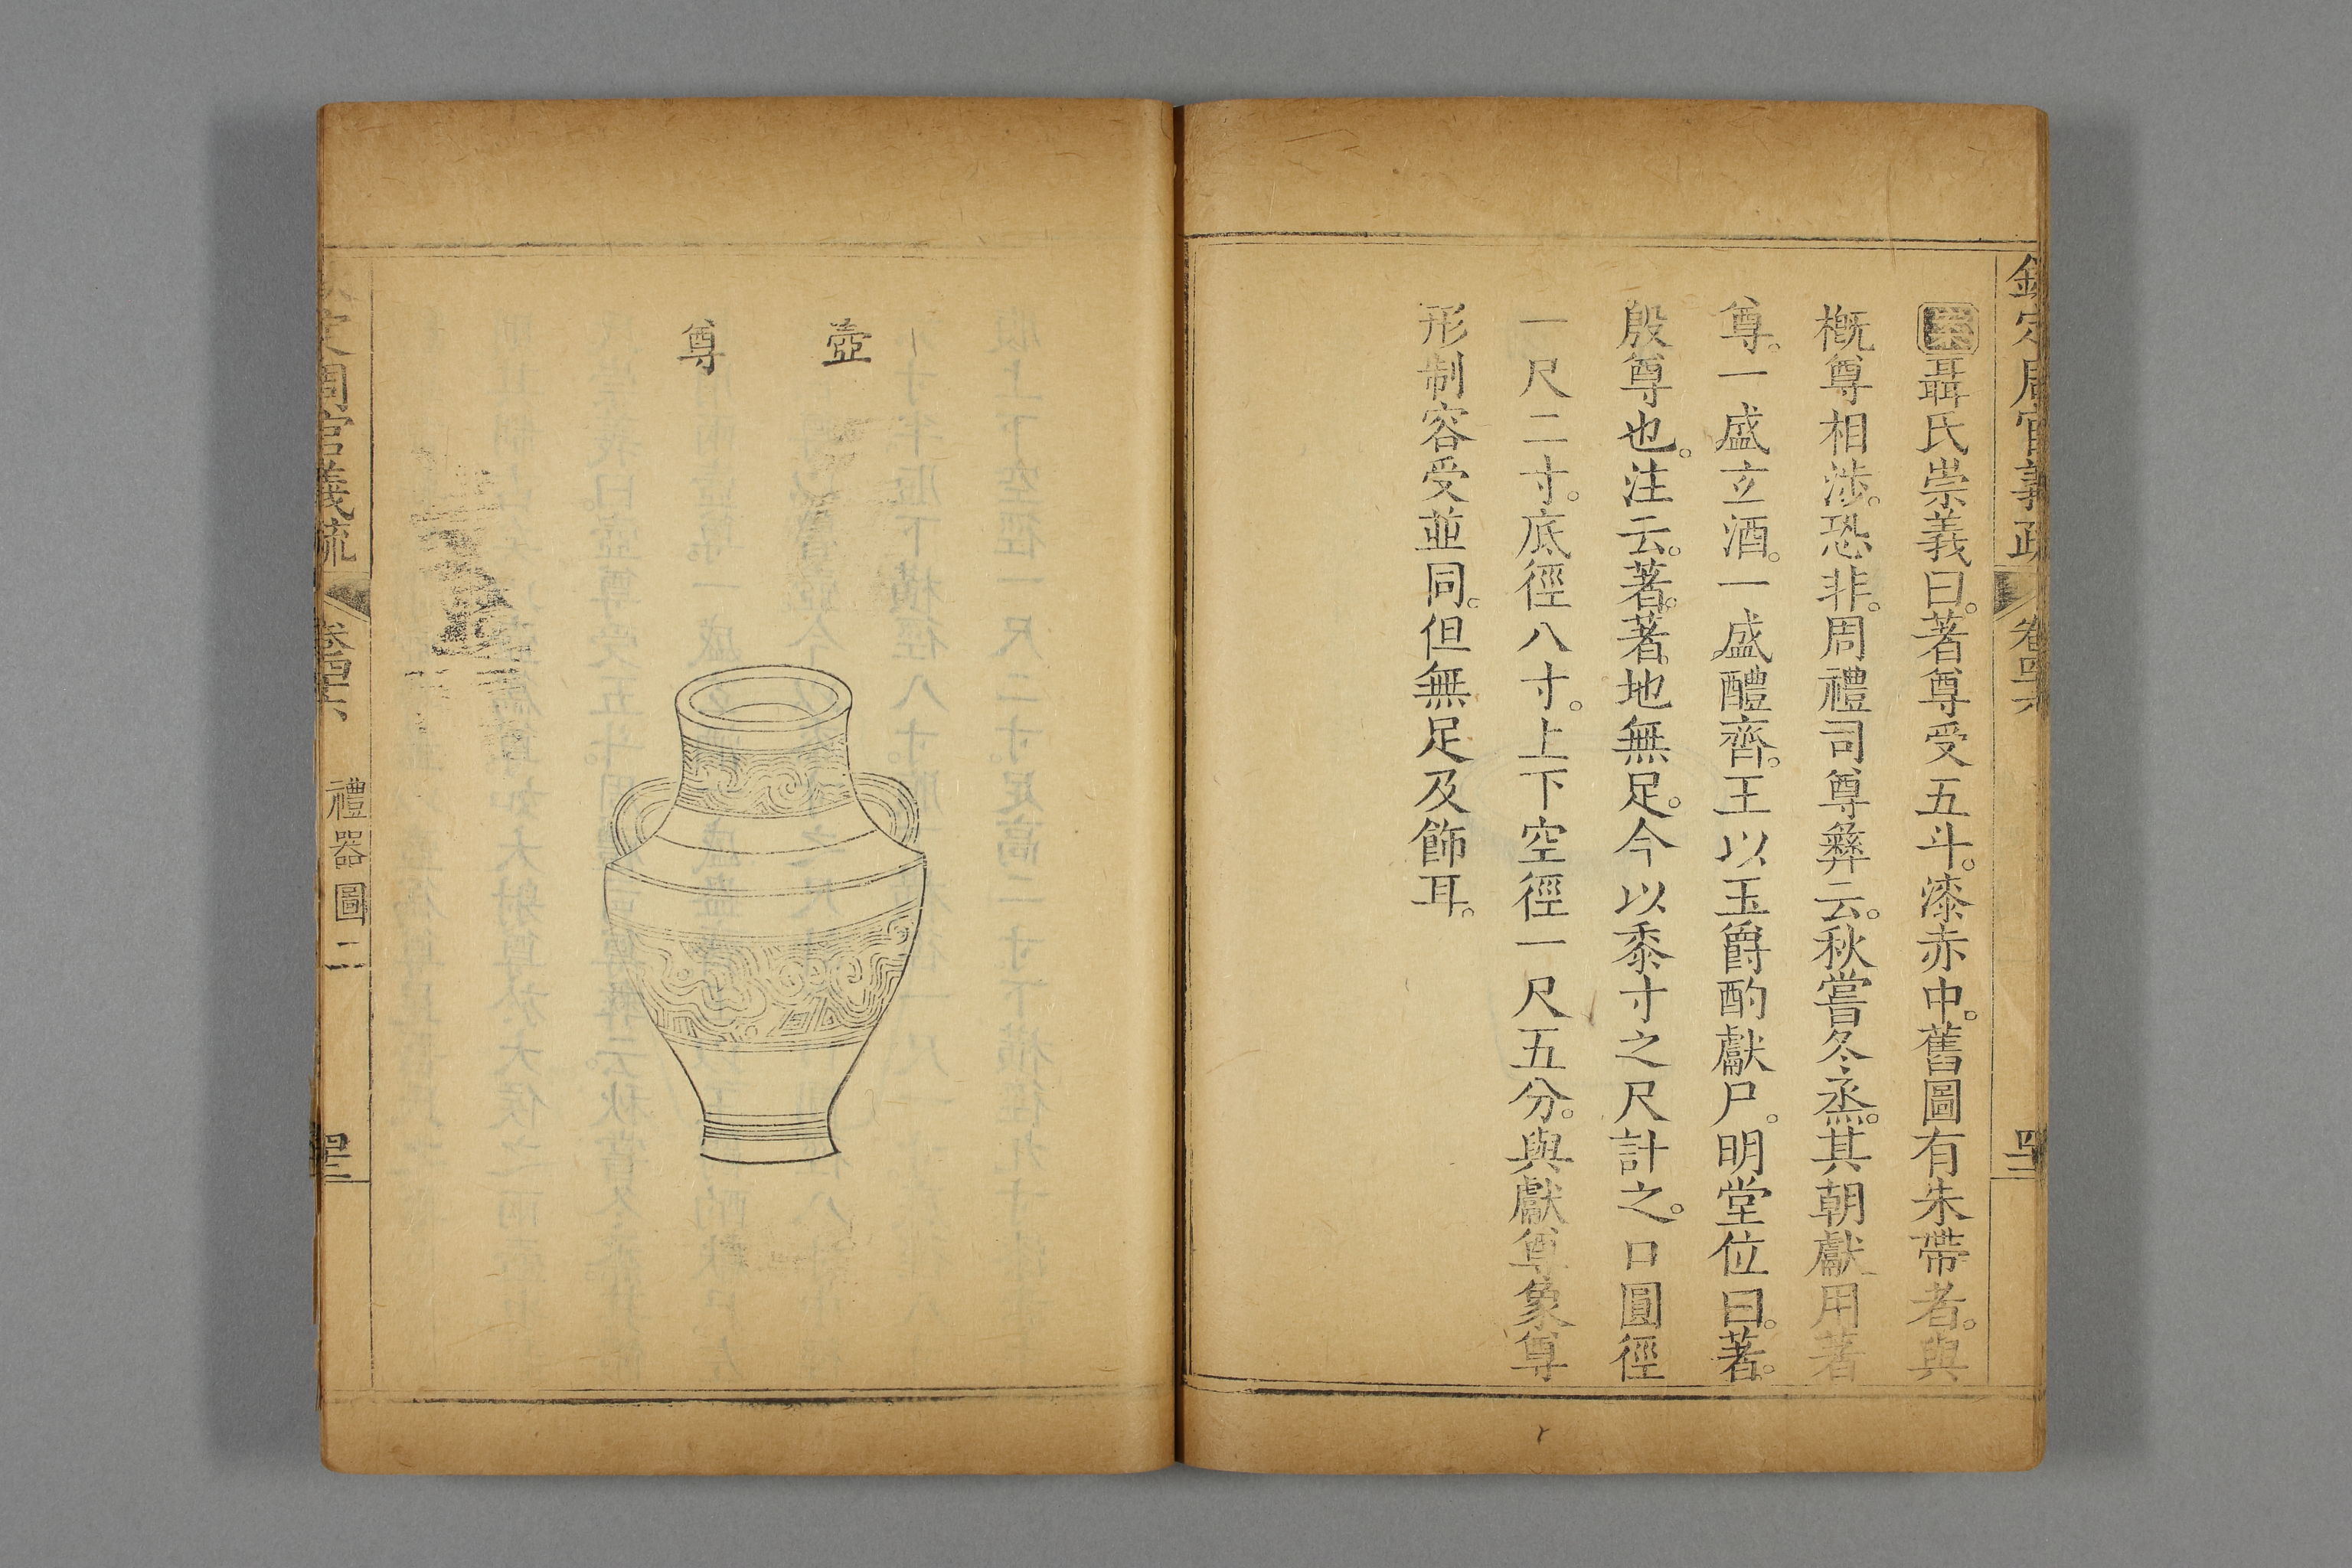 欽定周官義疏 卷四十六
聶氏崇義曰。著尊受五斗。漆赤中。舊圖有朱帶者。與
概尊相涉。恐非。周禮司尊彝云。秋嘗冬烝。其朝獻用著
尊。一盛玄酒。一盛醴齊。王以玉爵酌獻尸。明堂位曰。著。
殷尊也。注云。著。著地無足。今以黍寸之尺計之。口圓徑
一尺二寸。底徑八寸。上下空徑一尺五分。與獻尊象尊
形制容受並同。但無足及飾耳。
壺
尊
周官義疏 卷四十六 禮器圖二